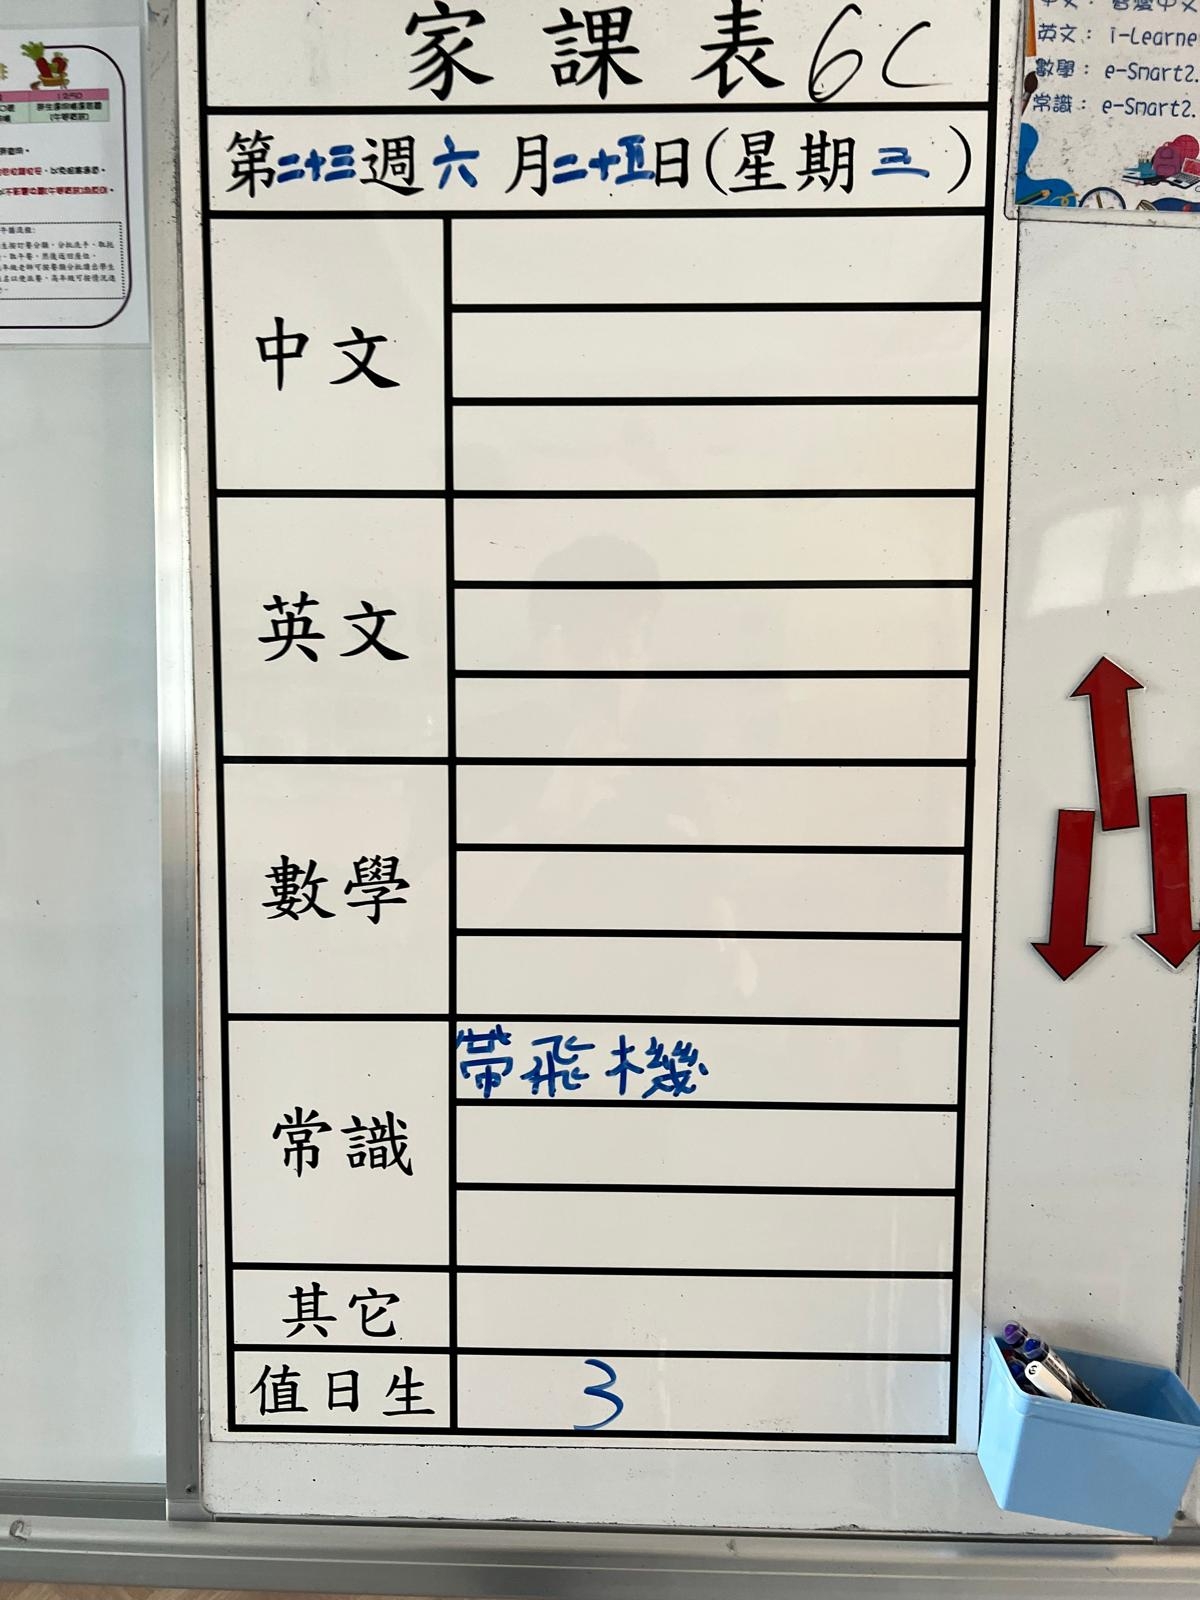 家課表 6C
第二十三週六月二十五日(星期三)
中文
英文
數學
常識 帶飛機
其它
值日生 3
英文：i-Learne
數學：e-Smart2.
常識：e-Smart2.
1250